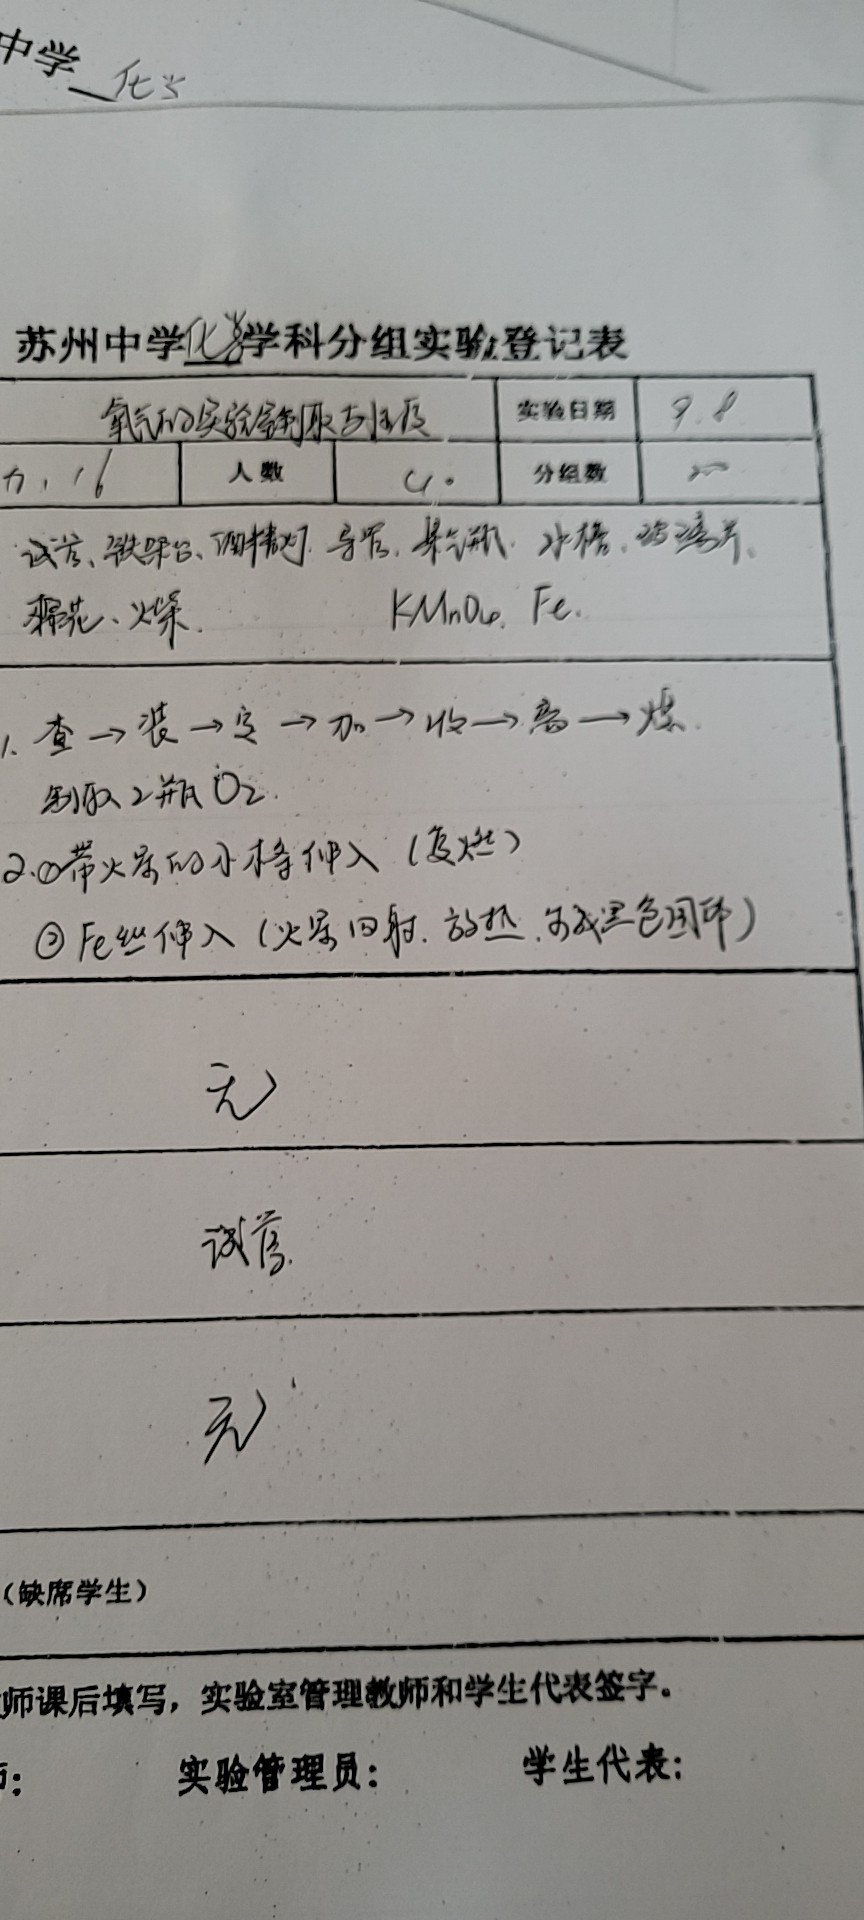 中学 化学
苏州中学化学学科分组实验登记表
氧气的实验室制取与性质 实验日期 9.8
九,16 人数 40 分组数 20
试管、铁架台、酒精灯、导管、集气瓶、水槽、玻璃片、
棉花、火柴. KMnO4. Fe.
1. 查→装→定→加→收→离→熄.
制取2瓶O2.
2.①带火星的小木条伸入(复燃)
②Fe丝伸入(火星四射.放热.生成黑色固体)
无
试管.
无
(缺席学生)
师课后填写，实验室管理教师和学生代表签字。
师: 实验管理员: 学生代表: